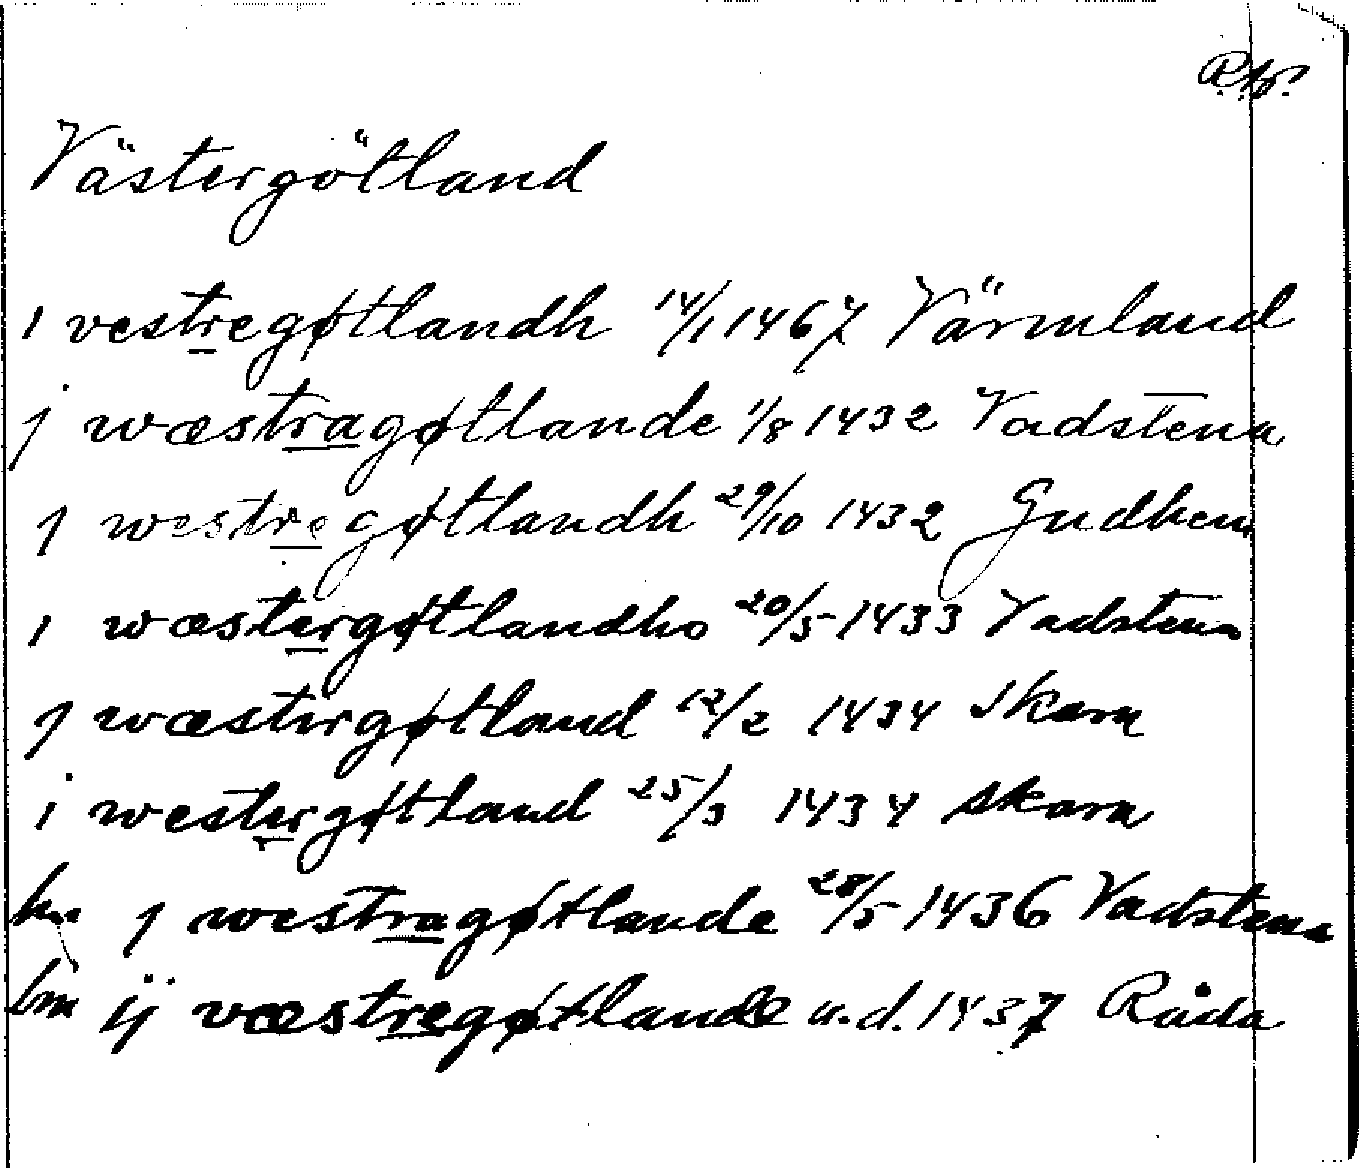 Västergötland
i vestregøtlandh 14/1 1467 Värmland
j wæstragøtlande 1/8 1432 Vadstena
j westregøtlandh 29/10 1432 Gudhem
i wæstergøtlandho 20/5 1433 Vadstena
j wæstergøtland 12/2 1434 Skara
i westergøtland 25/3 1434 Skara
j westragøtlande 28/5 1436 Vadstena
bm ij væstregøtlande u.d. 1437 Råda